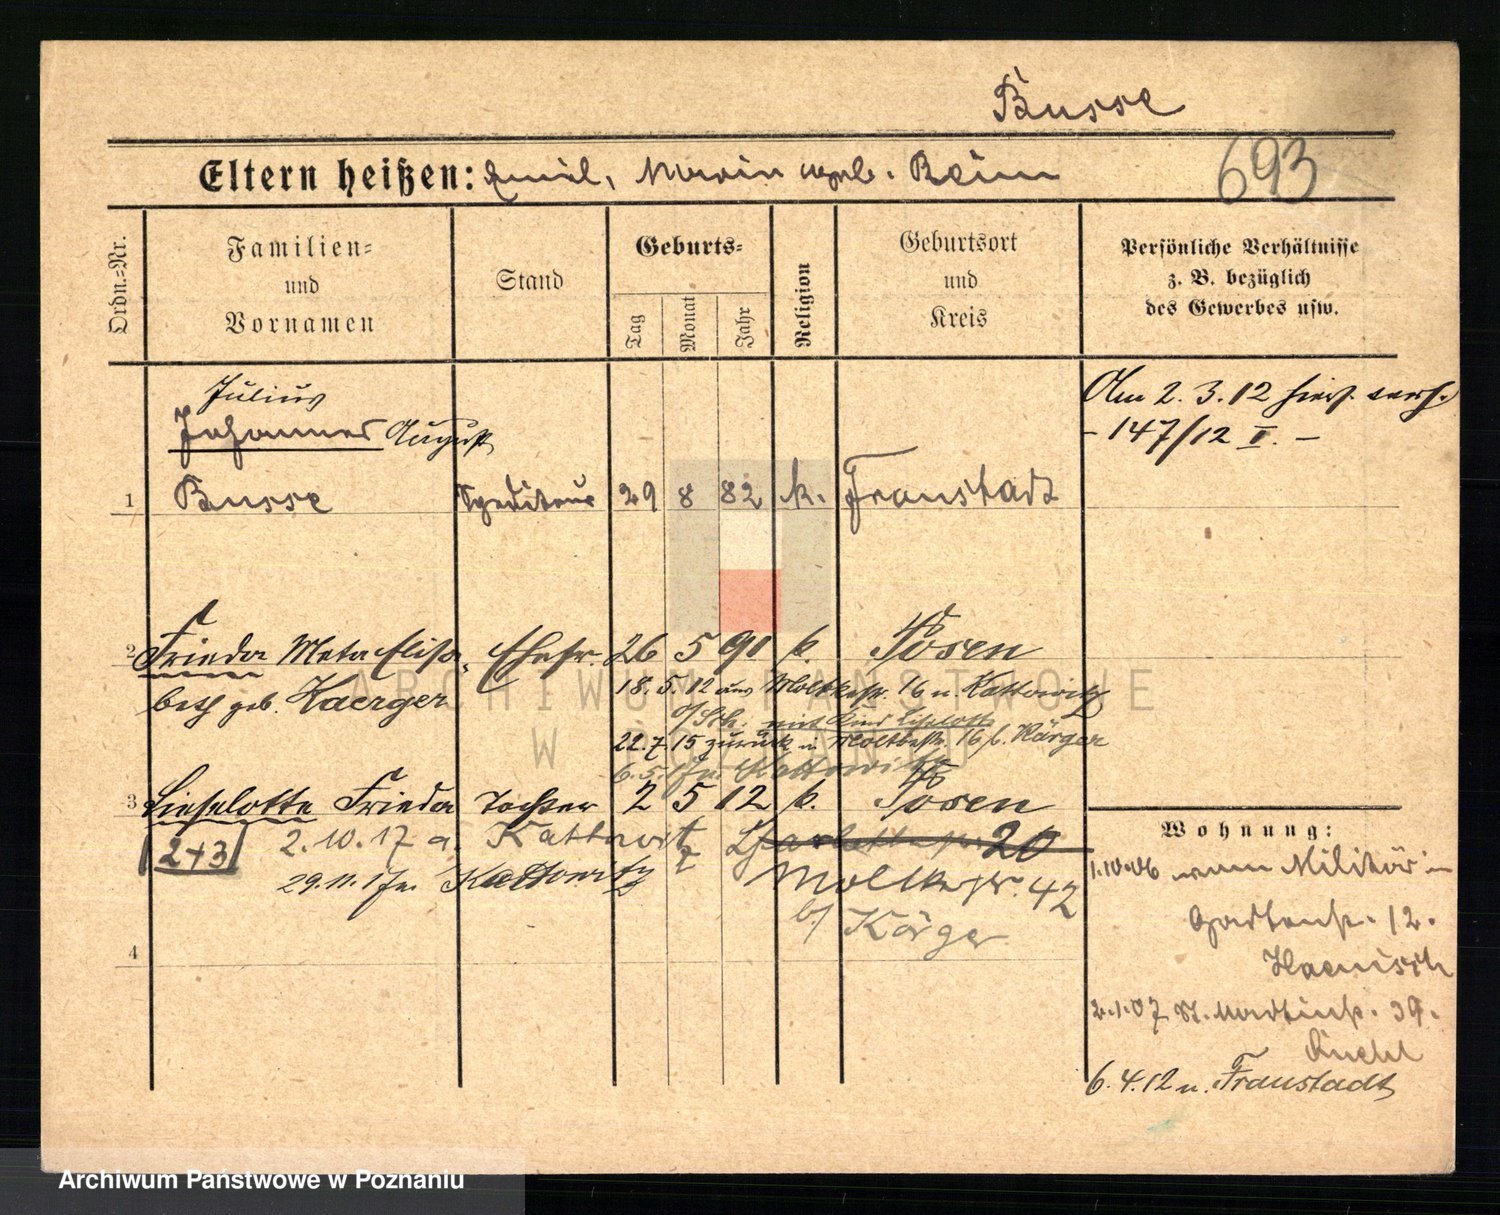 Busse
693
Eltern heißen: Emil, Maria geb. Beim
Ordn.=Nr.
Familien=
und
Vornamen
Stand
Geburts=
Tag
Monat
Jahr
Religion
Geburtsort
und
Kreis
Persönliche Verhältnisse
z. B. bezüglich
des Gewerbes usw.
Julius
Johannes August
1 Busse Spediteur 29 8 82 k. Fraustadt
Am 2.3.12 hier verh.
- 147/12 II. -
2 Frieda Meta Elisa= Ehefr. 26 5 90 k. Posen
beth geb. Kaerger
18.5.12 aus Moltkestr. 16 n. Kattowitz
o/Sch. mit Kind Liselotte
22.7.15 zurück n Moltkestr. 16 b. Kärger
6.5.17 n. Kattowitz
3 Lieselotte Frieda Tochter 2 5 12 k. Posen
2+3 2.10.17 a. Kattowitz 20
29.11.17 n. Kattowitz Moltkestr. 42
b/ Kärger
4
Wohnung:
1.10.06 vom Militär in
Gartenstr. 12.
Haenisch
2.1.07 St. Martinstr. 39.
6.4.12 n. Fraustadt
ARCHIWUM PAŃSTWOWE
W POZNANIU
Archiwum Państwowe w Poznaniu